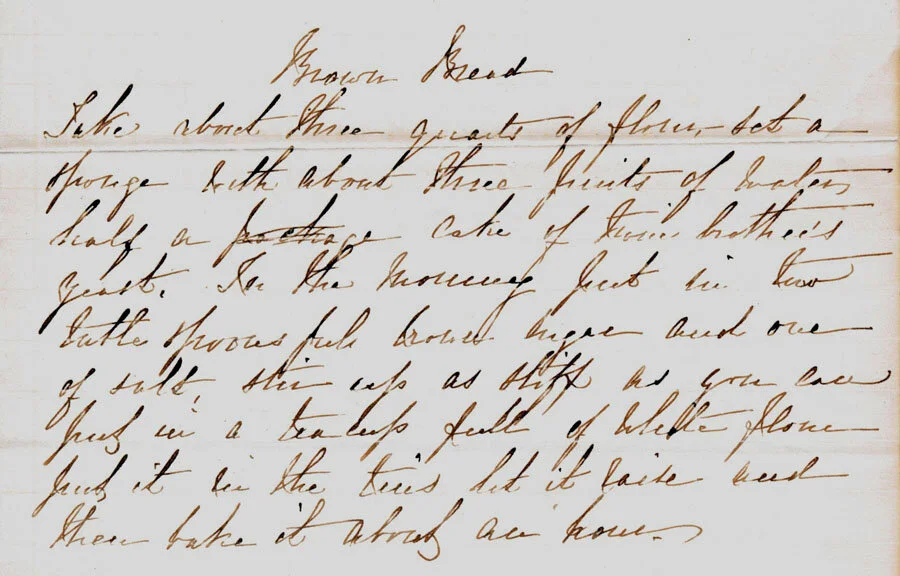 Brown Bread
Take about three quarts of flour set a
sponge with about three pints of water,
half a package cake of twin brother's
yeast. In the morning put in two
table spoons full brown sugar and one
of salt, stir up as stiff as you can
put in a teacup full of white flour
put it in the tins let it raise and
then bake it about an hour.